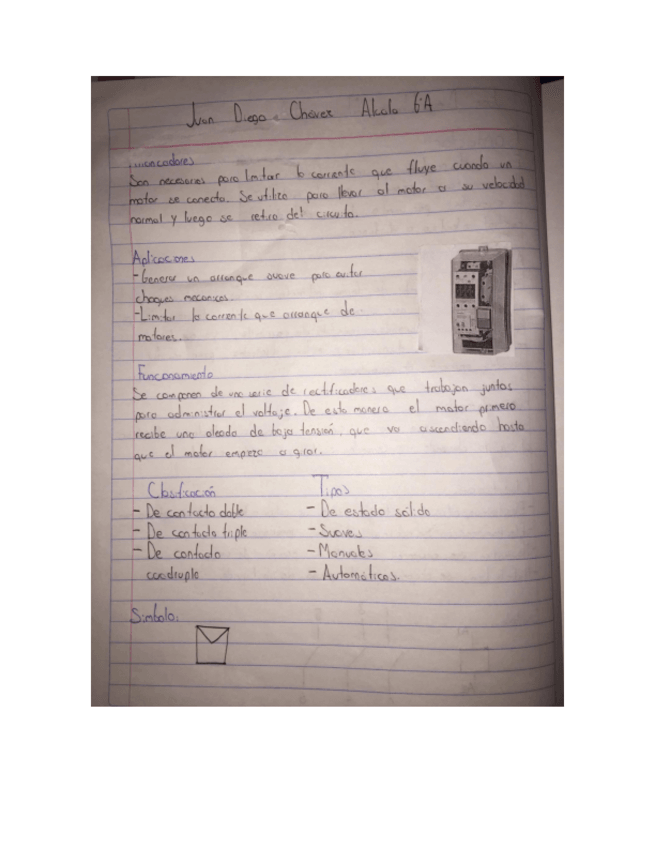 Juan Diego Chávez Alcala 6°A
Arrancadores
Son necesarios para limitar la corriente que fluye cuando un
motor se conecta. Se utiliza para llevar al motor a su velocidad
normal y luego se retira del circuito.
Aplicaciones
- Generar un arranque suave para evitar
choques mecanicos.
- Limitar la corriente que arranque de
motores.
Funcionamiento
Se componen de una serie de rectificadores que trabajan juntos
para administrar el voltaje. De esta manera el motor primero
recibe una oleada de baja tensión, que va ascendiendo hasta
que el motor empieza a girar.
Clasificación Tipos
- De contacto doble - De estado sólido
- De contacto triple - Suaves
- De contacto - Manuales
cuadruple - Automáticos.
Símbolo: